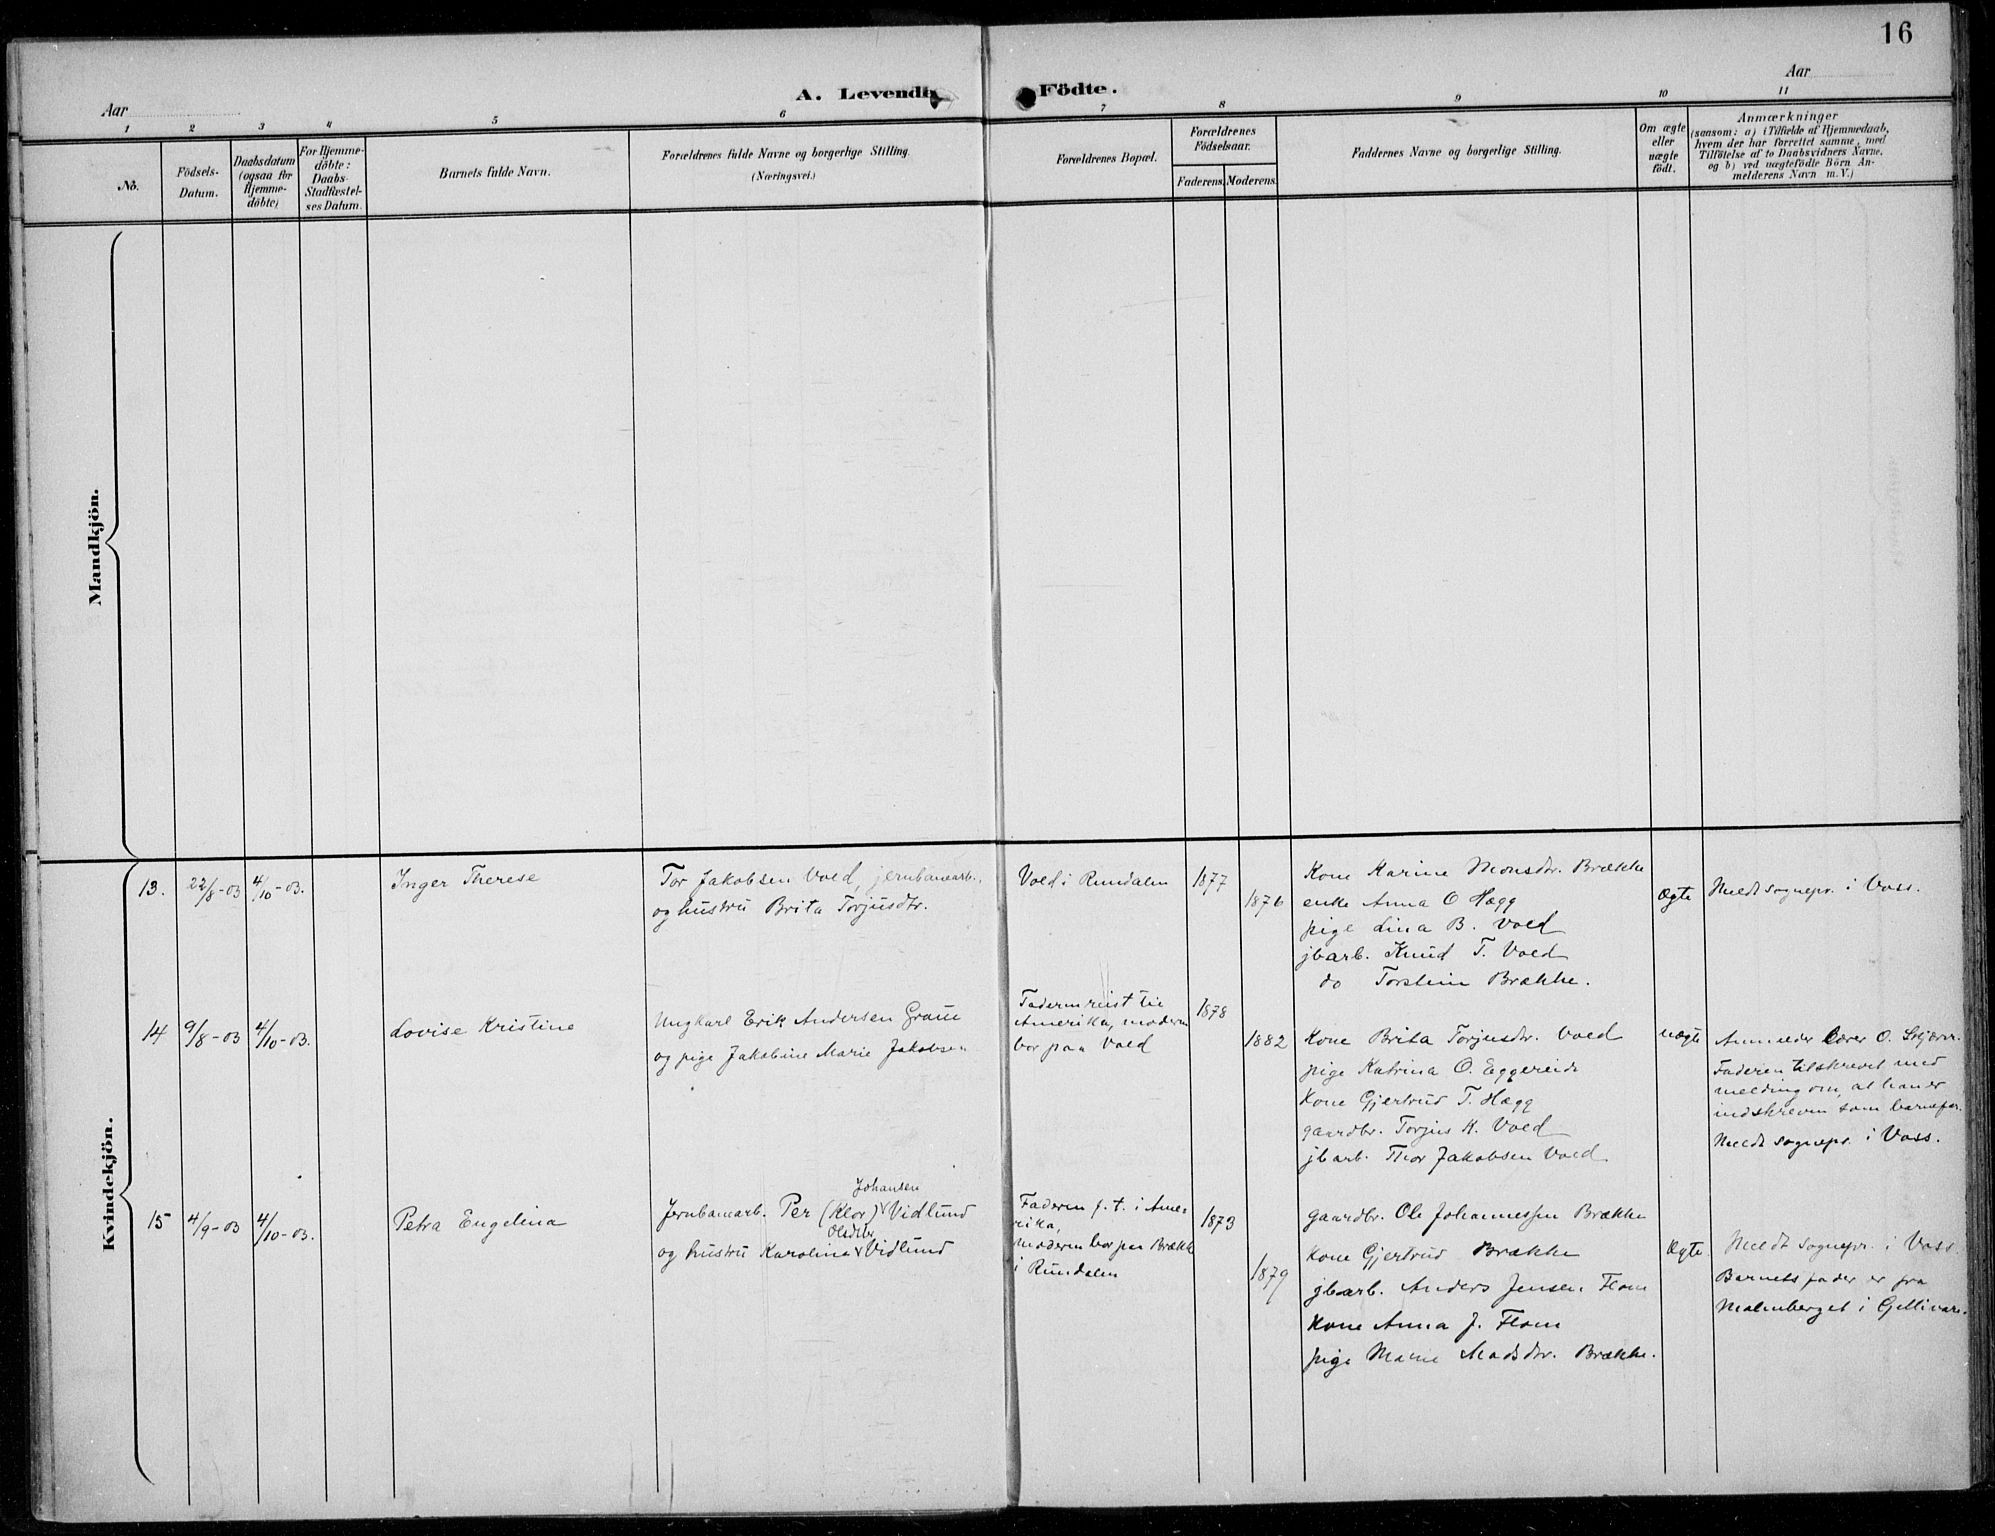 16
A. Levende Födte.
Aar
Aar
1 2 3 4 5 6 7 8 9 10 11
No.
Födsels-
Datum.
Daabsdatum
(ogsaa for
Hjemme-
döbte)
For Hjemme-
döbte:
Daabs-
Stadfæstel-
ses Datum.
Barnets fulde Navn.
Forældrenes fulde Navne og borgerlige Stilling.
(Næringsvei.)
Forældrenes Bopæl.
Forældrenes
Födselsaar.
Faderens. Moderens.
Faddernes Navne og borgerlige Stilling.
Om ægte
eller
uægte
födt.
Anmærkninger
(saasom: a) i Tilfælde af Hjemmedaab,
hvem der har forrettet samme, med
Tilföielse af to Daabsvidners Navne,
og b) ved uægtefödte Börn An-
melderens Navn m. V.)
Mandkjön.
Kvindekjön.
13.
22/8-03
4/10-03.
Inger Therese
Tor Jakobsen Vold, jernbanearb.,
og hustru Brita Torjusdtr.
Vold i Rundalen
1877
1876
Kone Karine Monsdtr. Brække
enke Anna O Hægg
pige Lina B. Vold
jbarb. Knud T. Vold
do Torstein Brække.
Ægte
Meldt sognepr. i Voss.
14
9/8-03
4/10-03.
Lovise Kristine
Ungkarl Erik Andersen
og pige Jakobine Marie Jakobsen
Faderen reist til
Amerika, moderen
bor paa Vold
1878
1882
Kone Brita Torjusdtr. Vold
pige Katrina O. Eggereide
Kone Gjertrud T. Hægg
gaardbr. Torjus K. Vold
jbarb. Thor Jakobsen Vold
uægte
Anmelder Lærer O. Skjærv.
Faderen tilskrevet med
melding om, at han er
indskreven som barnefar.
Meldt sognepr. i Voss.
15
4/9-03
4/10-03.
Petra Engelina
Johansen
Jernbanearb. Per (Klor) Vidlund
Olsdtr.
og hustru Karolina Vidlund
Faderen p. t. i Ame-
rika,
moderen bor paa Brække
i Rundalen
1873
1879
gaardbr. Ole Johannessen Brække
Kone Gjertrud Brække
jbarb. Anders Jensen Flom
Kone Anna J. Flom
pige Marie Madsdtr. Brække.
Ægte.
Meldt sognepr. i Voss.
Barnets fader er fra
Malmberget i Gellivare.